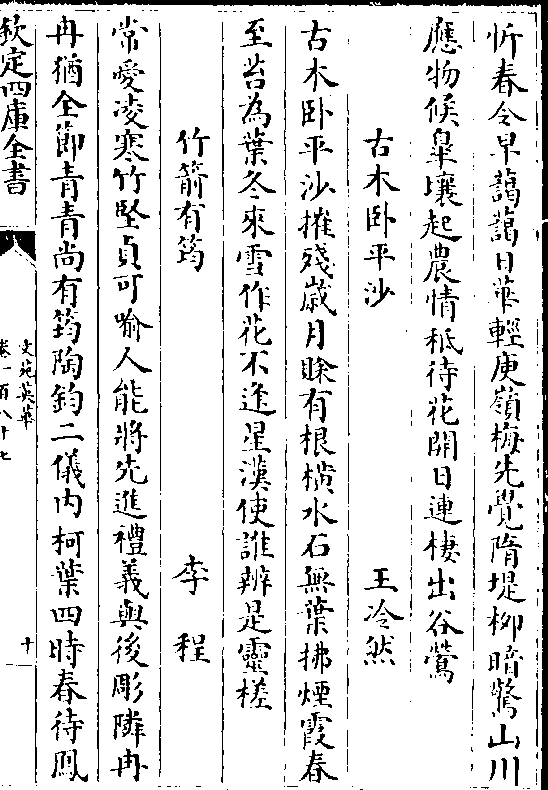 忻春令早藹藹日華輕庾嶺梅先覺隋堤柳暗驚山川
應物候臯壤起農情秪待花開日連棲出谷鶯
古木卧平沙　王泠然
古木卧平沙摧殘歳月賖有根橫水石無葉拂煙霞春
至苔為葉冬來雪作花不逢星漢使誰辨是靈槎
竹箭有筠　李程
常愛凌寒竹堅貞可喻人能將先進禮義與後彫隣冉
冉猶全節青青尚有筠陶鈞二儀内柯葉四時春待鳳
欽定四庫全書
文苑英華
卷一百八十七
十